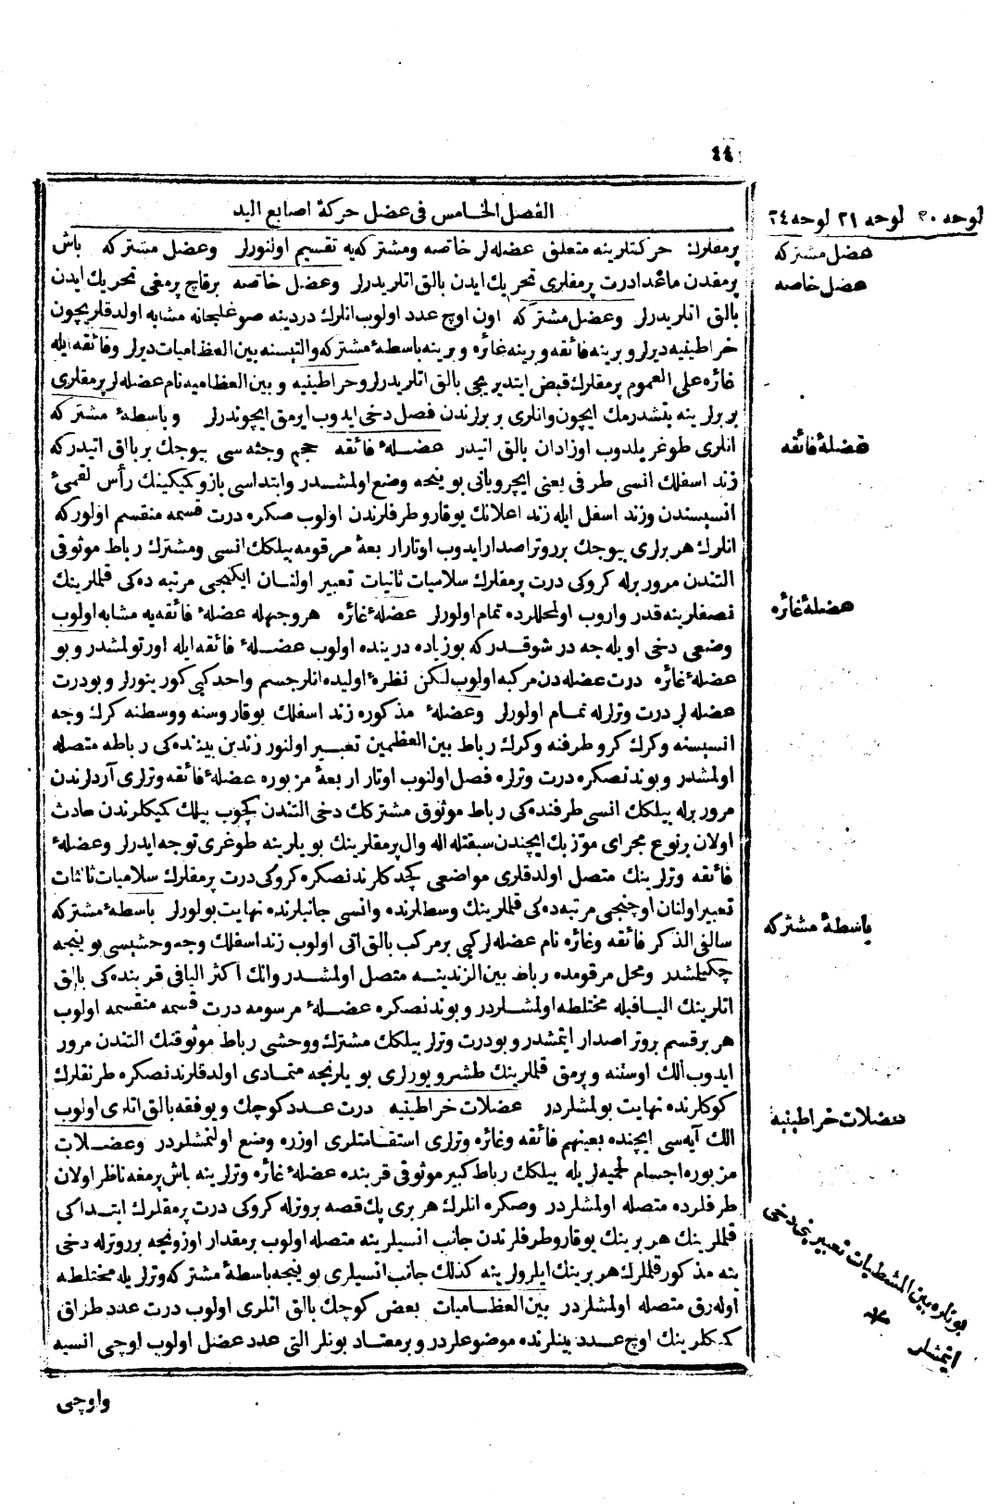 ٤٤
الفصل الخامس فى عضل حركة اصابع اليد
لوحه ٢٠ لوحه ٢١ لوحه ٢٤
پرمقلرك حركتلرينه متعلق عضله لر خاصه ومشتركه يه تقسيم اولنورلر وعضل مشتركه باش
عضل مشتركه
پرمقدن ماعدا درت پرمقلرى تحريك ايدن بالق اتلريدرلر وعضل خاصه برقاچ پرمغى تحريك ايدن
عضل خاصه
بالق اتلريدرلر وعضل مشتركه اون اوچ عدد اولوب انلرك دردينه صوغلجانه مشابه اولدقلريچون
خراطينيه ديرلر و برينه فائقه و برينه غائره و برينه باسطهٔ مشتركه والتيسنه بين العظاميات ديرلر وفائقه ايله
غائره على العموم پرمقلرك قبض ايتديريجى بالق اتلريدرلر وخراطينيه و بين العظاميه نام عضله لر پرمقلرى
بر برلرينه يتشدرمك ايچون وانلرى بر برلرندن فصل دخى ايدوب ايرمق ايچوندرلر وباسطهٔ مشتركه
انلرى طوغريلدوب اوزادان بالق اتيدر عضلهٔ فائقه حجم وجثه سى بيوجك بر بالق اتيدركه
عضلهٔ فائقه
زند اسفلك انسى طرفى يعنى ايچرويانى بوينجه وضع اولمشدر وابتداسى بازوكيكينك رأس لقمىٔ
انسيسندن وزند اسفل ايله زند اعلانك يوقارو طرفلرندن اولوب صكره درت قسمه منقسم اولوركه
انلرك هر برلرى بيوجك بر وتر اصدار ايدوب اوتار اربعهٔ مرقومه بيلكك انسى ومشترك رباط موثوقى
التندن مرور برله كروكى درت پرمقلرك سلاميات ثانيات تعبير اولنان ايكنجى مرتبه ده كى قلملرينك
نصفلرينه قدر واروب اول محللرده تمام اولورلر عضلهٔ غائره هر وجهله عضلهٔ فائقه يه مشابه اولوب
عضلهٔ غائره
وضعى دخى اويله جه در شوقدركه بو زياده درينده اولوب عضلهٔ فائقه ايله اورتولمشدر و بو
عضلهٔ غائره درت عضله دن مركبه اولوب لكن نظرهٔ اوليده انلر جسم واحد كبى كورينورلر و بو درت
عضله لر درت وترلرله تمام اولورلر وعضلهٔ مذكوره زند اسفلك يوقاروسنه ووسطنه كرك وجه
انسيسنه وكرك كرو طرفنه وكرك رباط بين العظمين تعبير اولنور زندين بيننده كى رباطه متصله
اولمشدر و بوندنصكره درت وترلره فصل اولنوب اوتار اربعهٔ مزبوره عضلهٔ فائقه وترلرى آردلرندن
مرور برله بيلكك انسى طرفنده كى رباط موثوق مشتركك دخى التندن كچوب بيلك كميكلرندن حادث
اولان بر نوع مجراى موّزبك ايچندن سبقتله اله وال پرمقلرينك بويلرينه طوغرى توجه ايدرلر وعضلهٔ
فائقه وترلرينك متصل اولدقلرى مواضعى كچدكلرندنصكره كروكى درت پرمقلرك سلاميات ثالثات
تعبير اولنان اوچنجى مرتبه ده كى قلملرينك وسطلرنده وانسى جانبلرنده نهايت بولورلر باسطهٔ مشتركه
باسطهٔ مشتركه
سالفى الذكر فائقه وغائره نام عضله لر كبى بر مركب بالق اتى اولوب زند اسفلك وجه وحشيسى بوينجه
چكيلمشدر ومحل مرقومده رباط بين الزندينه متصل اولمشدر وانك اكثر اليافى قربنده كى بالق
اتلرينك اليافيله مختلطه اولمشلردر و بوندنصكره عضلهٔ مرسومه درت قسمه منقسمه اولوب
هر بر قسم بر وتر اصدار ايتمشدر و بو درت وترلر بيلكك مشترك ووحشى رباط موثوقنك التندن مرور
ايدوب الك اوستنه و پرمق قلملرينك طشرو يوزلرى بويلرنجه متمادى اولدقلرندنصكره طرنقلرك
كوكلرنده نهايت بولمشلردر عضلات خراطينيه درت عدد كوچك و يوفقه بالق اتلرى اولوب
عضلات خراطينيه
الك آيه سى ايچنده بعينهم فائقه وغائره وترلرى استقامتلرى اوزره وضع اولنمشلردر وعضلات
مزبوره اجسام لحميه لريله بيلكك رباط كبير موثوقى قربنده عضلهٔ غائره وترلرينه باش پرمغه ناظر اولان
طرفلرده متصله اولمشلردر وصكره انلرك هر برى پك قصه بر وترله كروكى درت پرمقلرك ابتداكى
قلملرينك هر برينك يوقارو طرفلرندن جانب انسيلرينه متصله اولوب بر مقدار اوزونجه بر وترله دخى
ينه مذكور قلملرك هر برينك ايلرولرينه كذلك جانب انسيلرى بوينجه باسطهٔ مشتركه وترلريله مختلطه
اوله رق متصله اولمشلردر بين العظاميات بعض كوچك بالق اتلرى اولوب درت عدد طراق
بونلره بين المشطيات تعبير نجه دخى
ايتمشلر
كميكلرينك اوچ عدد بينلرنده موضوعلردر و بر معتاد بونلر التى عدد عضل اولوب اوچى انسيه
واوچى